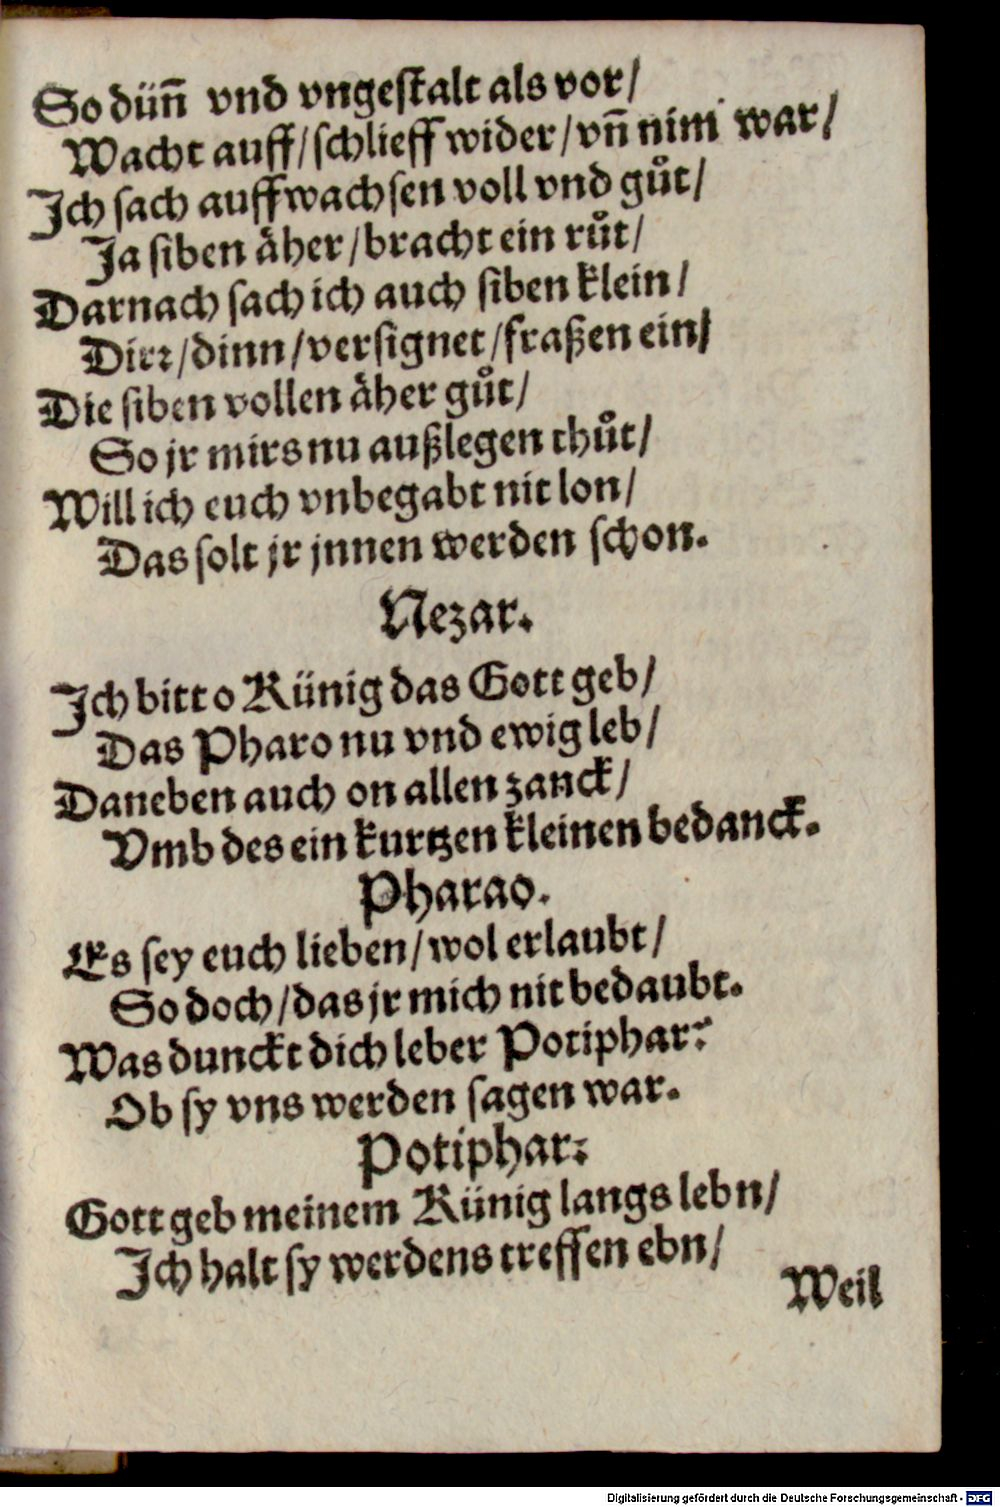 So dün̄ vnd vngestalt als vor/
Wacht auff/schlieff wider/vn̄ nim̄ war/
Ich sach auffwachsen voll vnd gůt/
Ja siben äher/bracht ein růt/
Darnach sach ich auch siben klein/
Dirr/dinn/versignet/fraßen ein/
Die siben vollen äher gůt/
So jr mirs nu außlegen thůt/
Will ich euch vnbegabt nit lon/
Das solt jr jnnen werden schon.
Nezar.
Ich bitt o Künig das Gott geb/
Das Pharo nu vnd ewig leb/
Daneben auch on allen zanck/
Vmb des ein kurtzen kleinen bedanck.
Pharao.
Es sey euch lieben/wol erlaubt/
So doch/das jr mich nit bedaubt.
Was dunckt dich leber Potiphar?
Ob sy vns werden sagen war.
Potiphar:
Gott geb meinem Künig langs lebn/
Ich halt sy werdens treffen ebn/
Weil
Digitalisierung gefördert durch die Deutsche Forschungsgemeinschaft - DFG